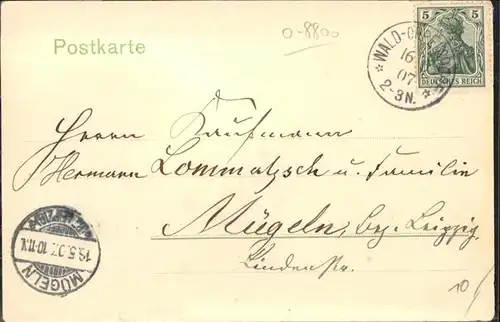 0-8800
Postkarte
5 5
DEUTSCHES REICH
* WALD-O
16
07
2-3N. *
Herrn Kaufmann
Hermann Lommatzsch u. Familie
Mügeln, bez. Leipzig
Lindenstr.
BEZ. LEIPZIG
16.5.07. 10-11.N.
MÜGELN
10